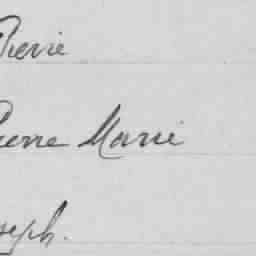 Pierre
Pierre Marie
Joseph.